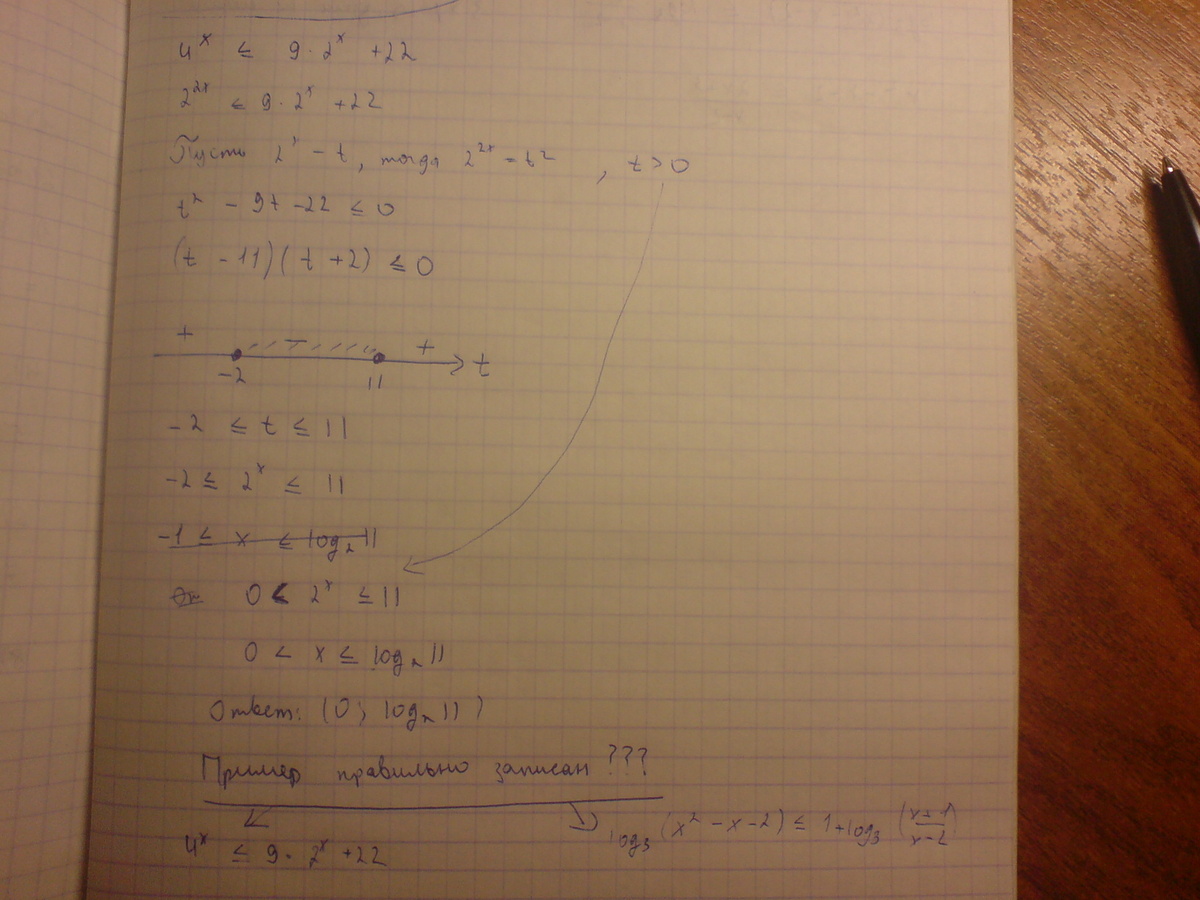 4^x ≤ 9·2^x +22
2^2x ≤ 9·2^x +22
Пусть 2^x = t, тогда 2^2x = t^2, t>0
t^2 - 9t - 22 ≤ 0
(t - 11)(t + 2) ≤ 0
+ - +
-2 11 t
-2 ≤ t ≤ 11
-2 ≤ 2^x ≤ 11
-1 ≤ x ≤ log_2 11
От 0 < 2^x ≤ 11
0 < x ≤ log_2 11
Ответ: (0; log_2 11)
Пример правильно записан ???
4^x ≤ 9·2^x +22
log_3 (x^2 - x - 2) ≤ 1 + log_3 (x+1 / x-2)